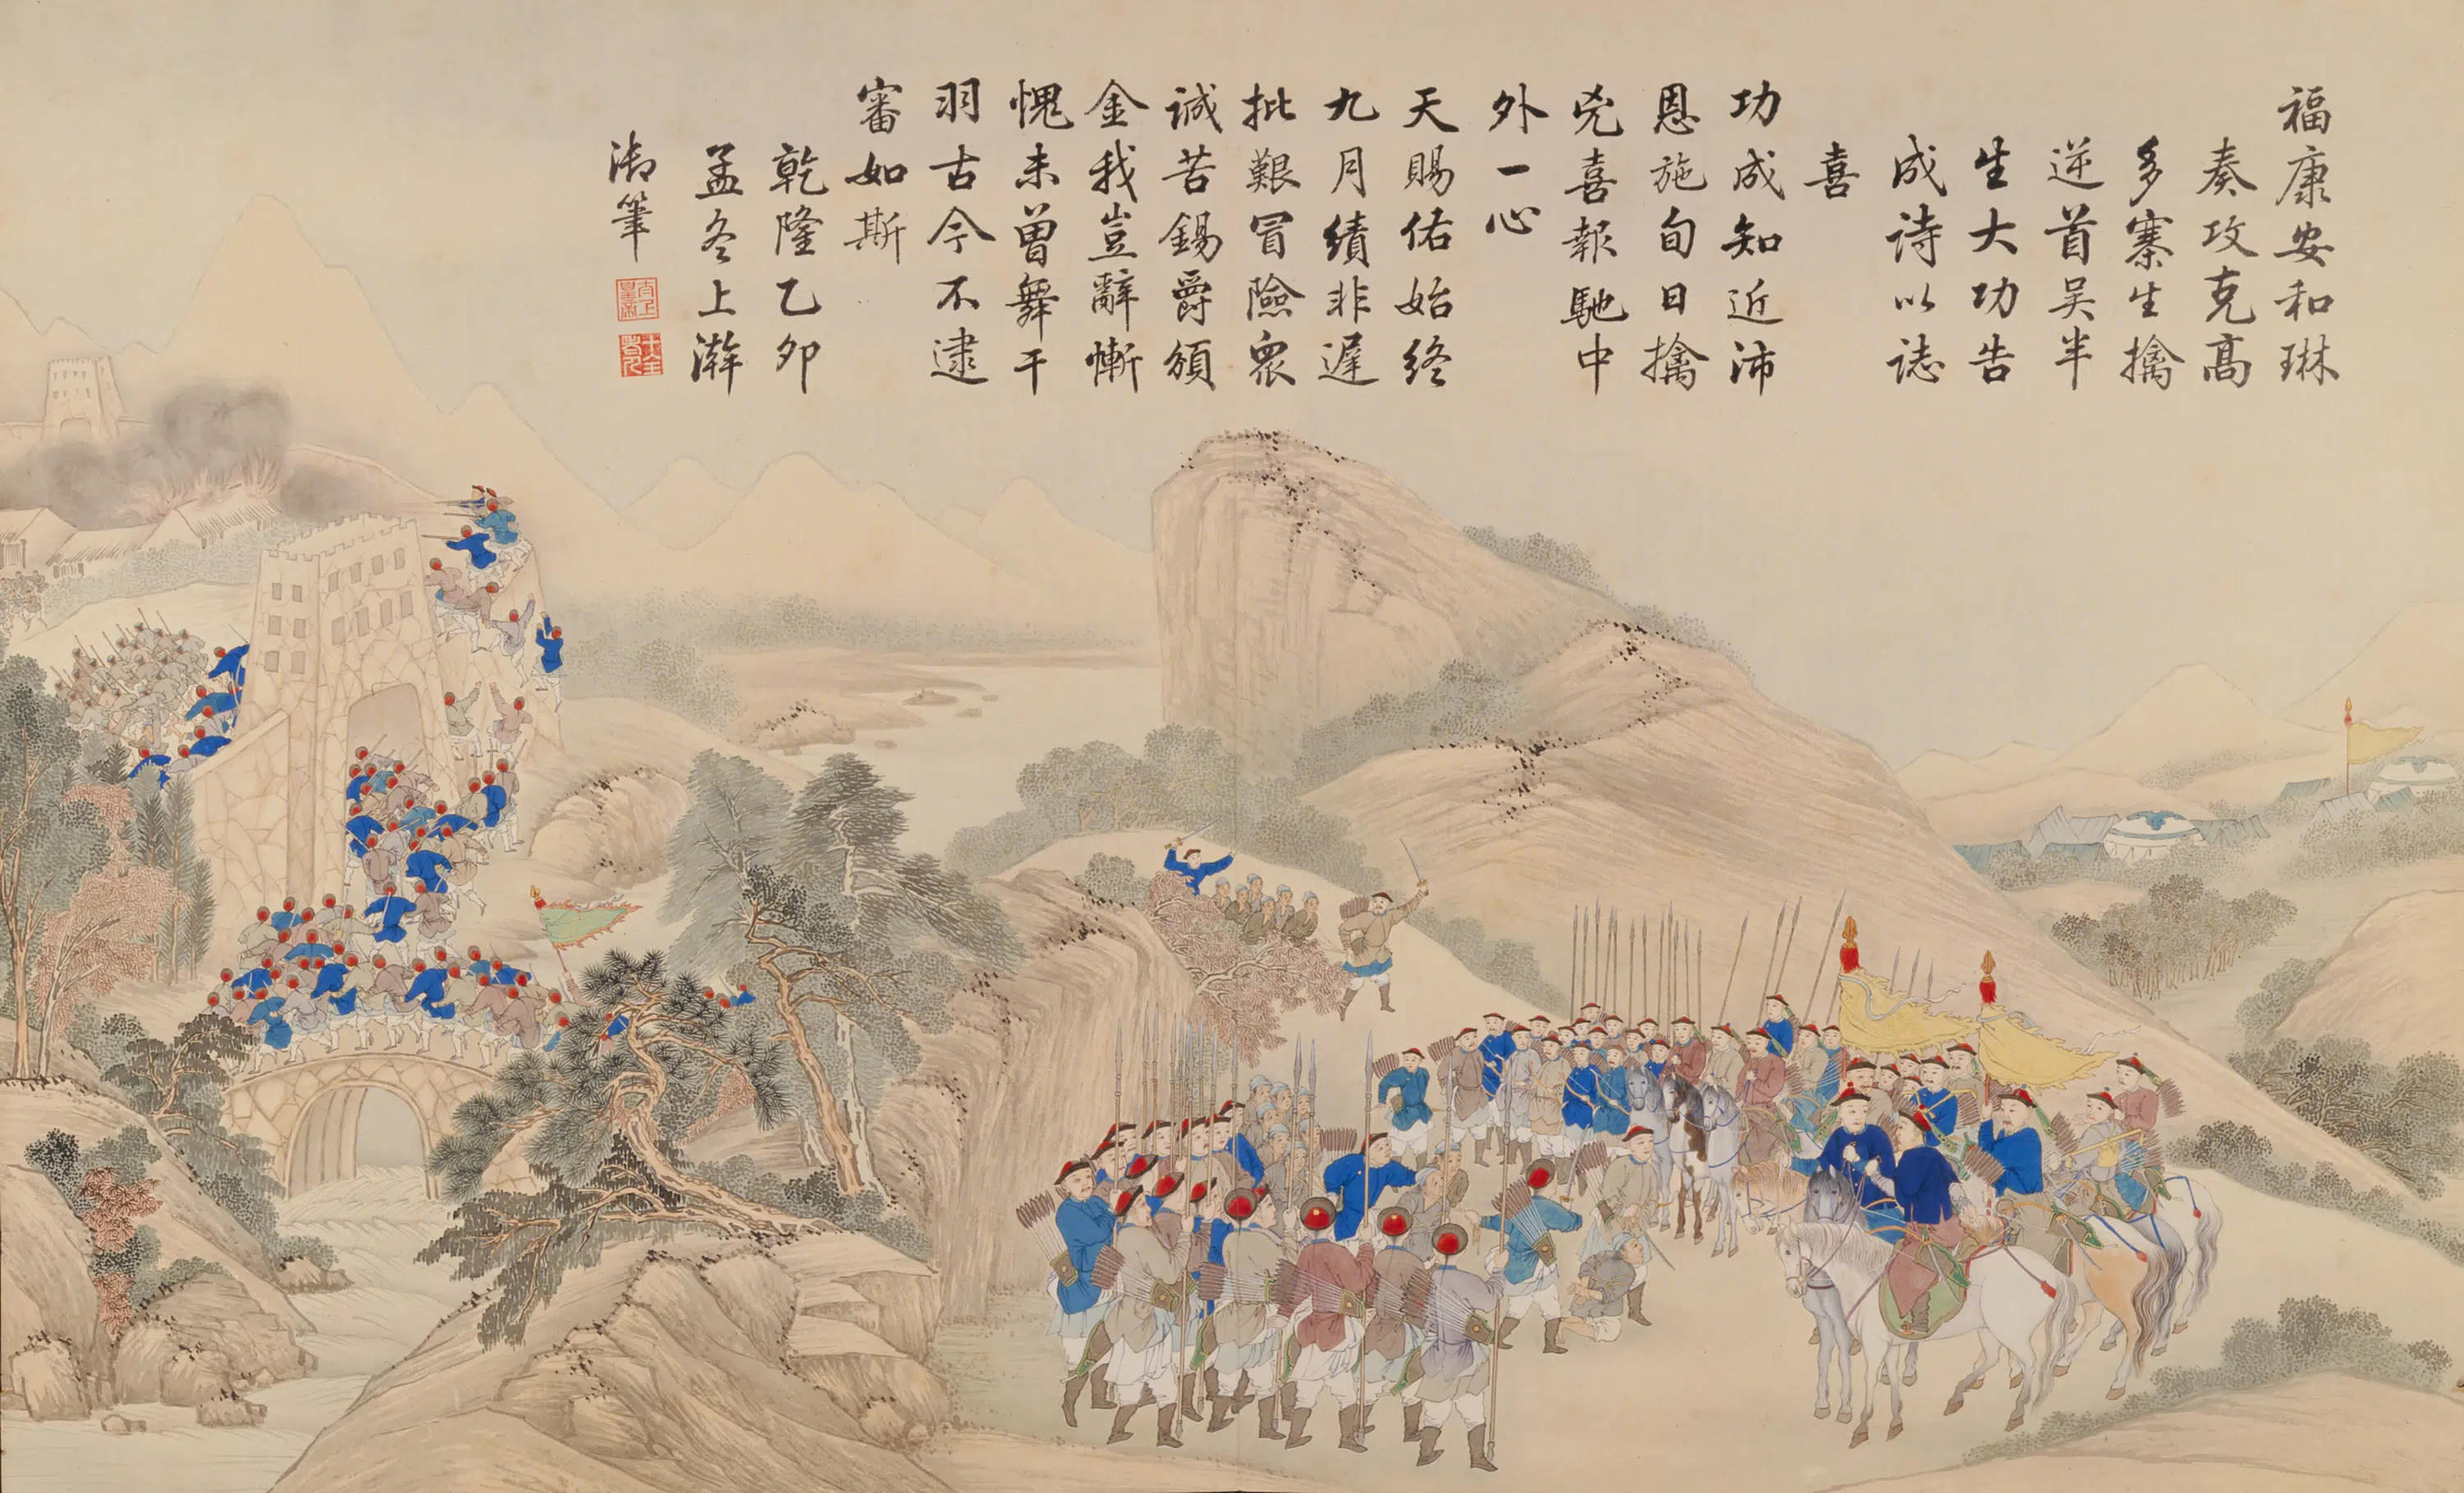 福康安和琳
奏攻克髙
多寨生擒
逆首吴半
生大功告
成诗以誌
喜
功成知近沛
恩施旬日擒
兇喜報馳中
外一心
天賜佑始終
九月績非遲
批艱冒險衆
誠苦錫爵頒
金我豈辭慚
愧未曽舞干
羽古今不逮
審如斯
乾隆乙卯
孟冬上澣
御筆